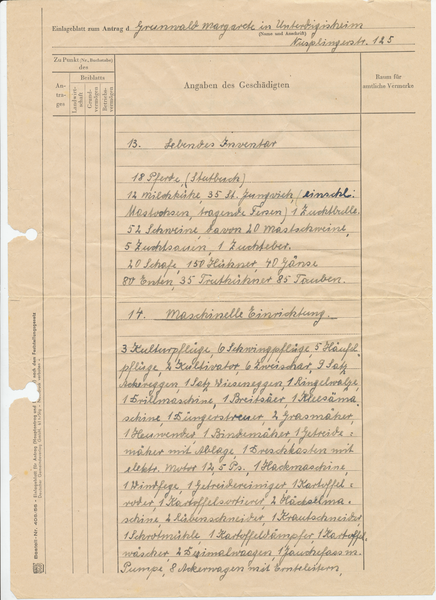 Einlageblatt zum Antrag d. Grunwald Margarete in Unterdigisheim
(Name und Anschrift)
Nusplingerstr. 125
Zu Punkt (Nr., Buchstabe)
des
An-
tra-
ges
Beiblatts
Landwirt-
schaft
Grund-
vermögen
Betriebs-
vermögen
Angaben des Geschädigten
Raum für
amtliche Vermerke
13. Lebendes Inventar
18 Pferde, (Stutbuch)
12 Milchkühe, 35 St. Jungvieh, (einschl.
Mastochsen, tragende Fersen) 1 Zuchtbulle.
52 Schweine davon 20 Mastschweine,
5 Zuchtsauen, 1 Zuchteber.
20 Schafe, 150 Hühner, 40 Gänse
80 Enten, 35 Truthühner 85 Tauben.
14. Maschinelle Einrichtung.
3 Kulturpflüge, 6 Schwingpflüge, 5 Häufel-
pflüge, 2 Kultivator 6 Zweischar, 9 Satz
Ackereggen, 1 Satz Wieseneggen 1 Ringelwalze
1 Drillmaschine, 1 Breitsäer, 1 Kleesäma-
schine, 1 Düngerstreuer, 2 Grasmäher,
1 Heuwender, 1 Bindemäher 1 Getreide-
mäher mit Ablage, 1 Dreschkasten mit
elektr. Motor 12,5 Ps. 1 Hackmaschine,
1 Windfege, 1 Getreidereiniger, 1 Kartoffel-
roder, 1 Kartoffelsortierer, 2 Häckselma-
schine, 2 Rübenschneider, 1 Krautschneider
1 Schrotmühle, 1 Kartoffeldämpfer, 1 Kartoffel-
wäscher 2 Dezimalwaagen, 1 Jauchefass m.
Pumpe, 8 Ackerwagen mit Ernteleitern,